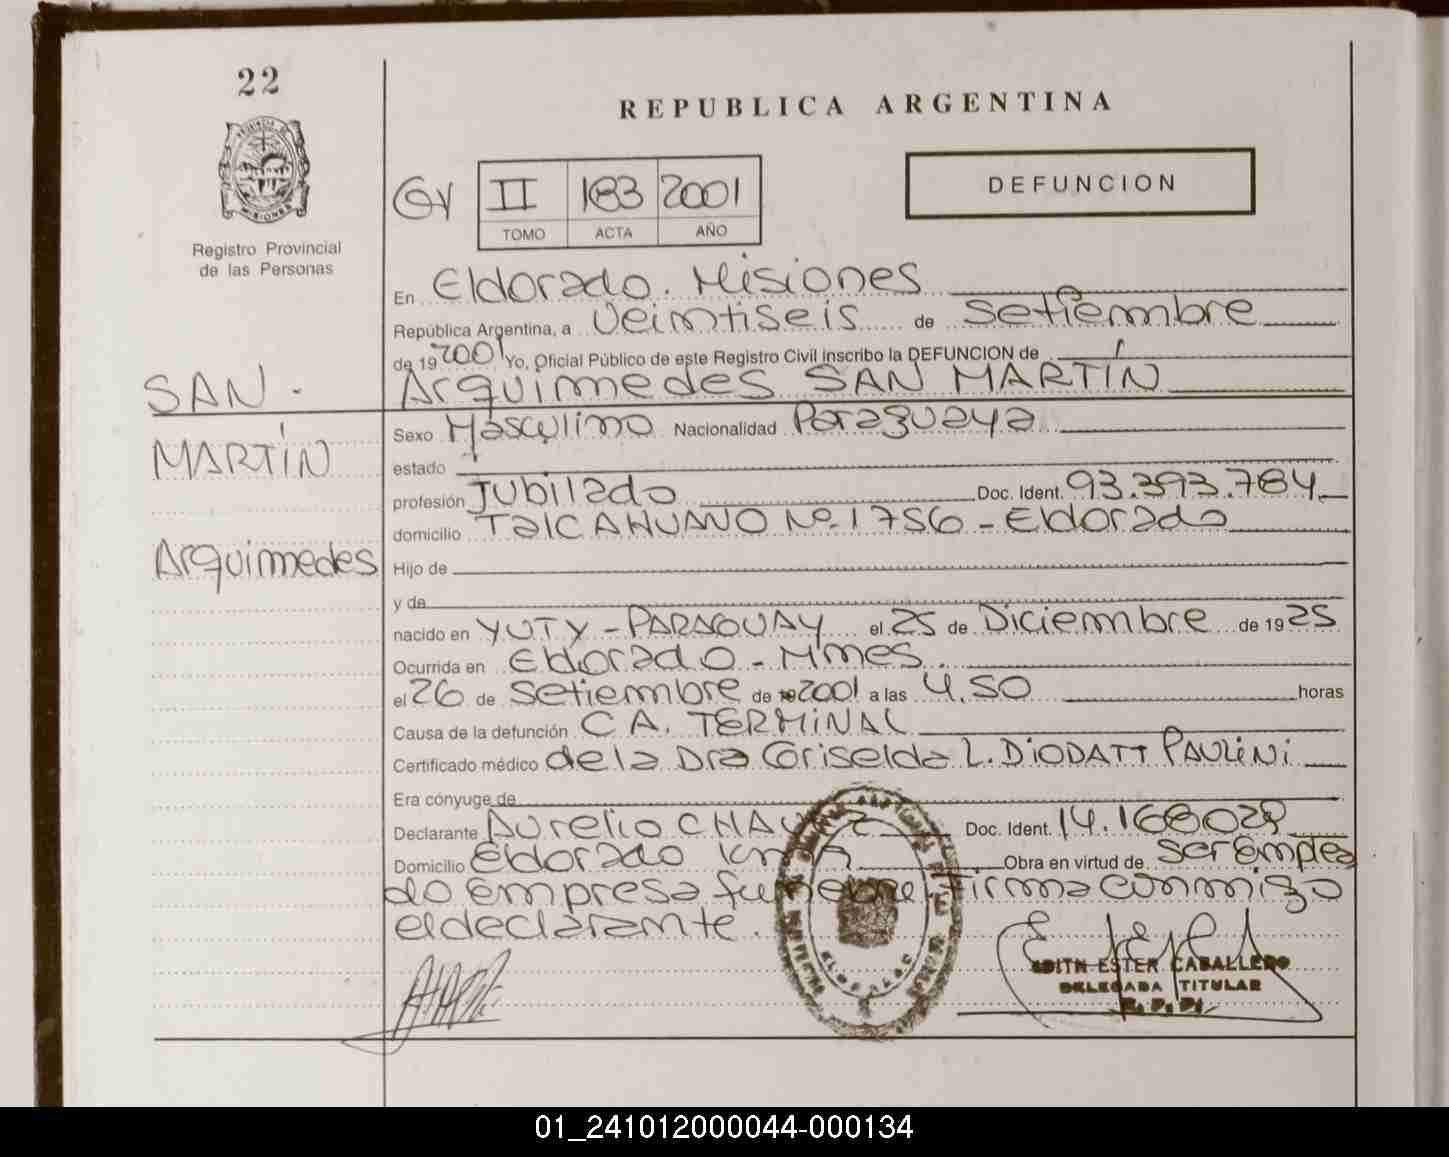 22
REPUBLICA ARGENTINA
DEFUNCION
II 183 2001
TOMO ACTA AÑO
Registro Provincial
de las Personas
En Eldorado. Misiones
República Argentina, a Veintiseis de Setiembre
de 19 2001 Yo, Oficial Público de este Registro Civil inscribo la DEFUNCION de
Arquimedes SAN MARTÍN
SAN -
MARTÍN
Arquimedes
Sexo Masculino Nacionalidad Paraguaya
estado
profesión Jubilado Doc. Ident. 93.393.784
domicilio TalCAHUANO Nº 1756 - Eldorado
Hijo de
y de
nacido en YUTY - PARAGUAY el 25 de Diciembre de 19 25
Ocurrida en Eldorado - Mnes.
el 26 de Setiembre de 2001 a las 4,50 horas
Causa de la defunción C A. TERMINAL
Certificado médico de la Dra Griselda L. DiODATT PAULiNi
Era cónyuge de
Declarante Aurelio Doc. Ident. 14.168028
Domicilio Eldorado Obra en virtud de ser Emplea
do Empresa funebre firma conmigo
el declarante.
EDITH ESTER CABALLERO
DELEGADA TITULAR
R.P.P.
01_241012000044-000134